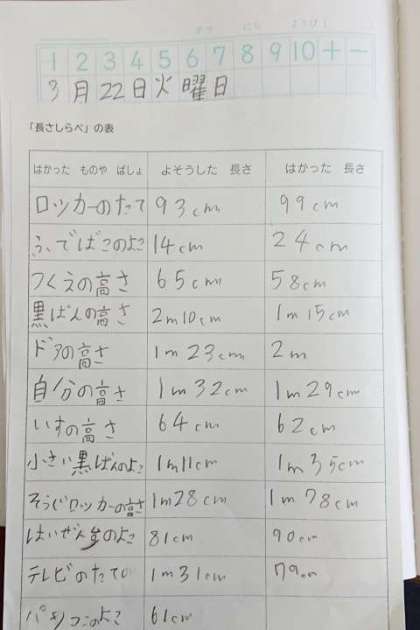 1 2 3 4 5 6 7 8 9 10 + −
3月22日火曜日
「長さしらべ」の表
はかった ものや ばしょ よそうした 長さ はかった 長さ
ロッカーのたて 93cm 99cm
ふでばこのよこ 14cm 24cm
つくえの高さ 65cm 58cm
黒ばんの高さ 2m10cm 1m15cm
ドアの高さ 1m23cm 2m
自分の高さ 1m32cm 1m29cm
いすの高さ 64cm 62cm
小さい黒ばんのよこ 1m11cm 1m35cm
そうじロッカーの高さ 1m28cm 1m78cm
はいぜん台のよこ 81cm 90cm
テレビのたての 1m31cm 79cm
パソコンのよこ 61cm